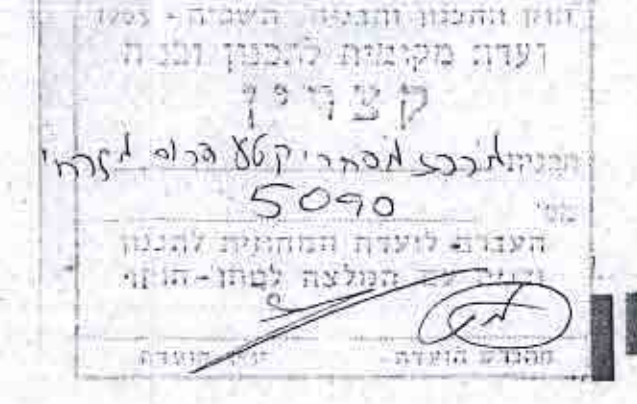 חוק התכנון והבניה, תשכ"ה - 1965
ועדה מקומית לתכנון ובניה
קצרין
תכנית מרכז מסחרי קטע דרום מזרחי
מס' 5090
העברה לועדה המחוזית לתכנון
ובניה עם המלצה למתן-תוקף
מהנדס הועדה יו"ר הועדה